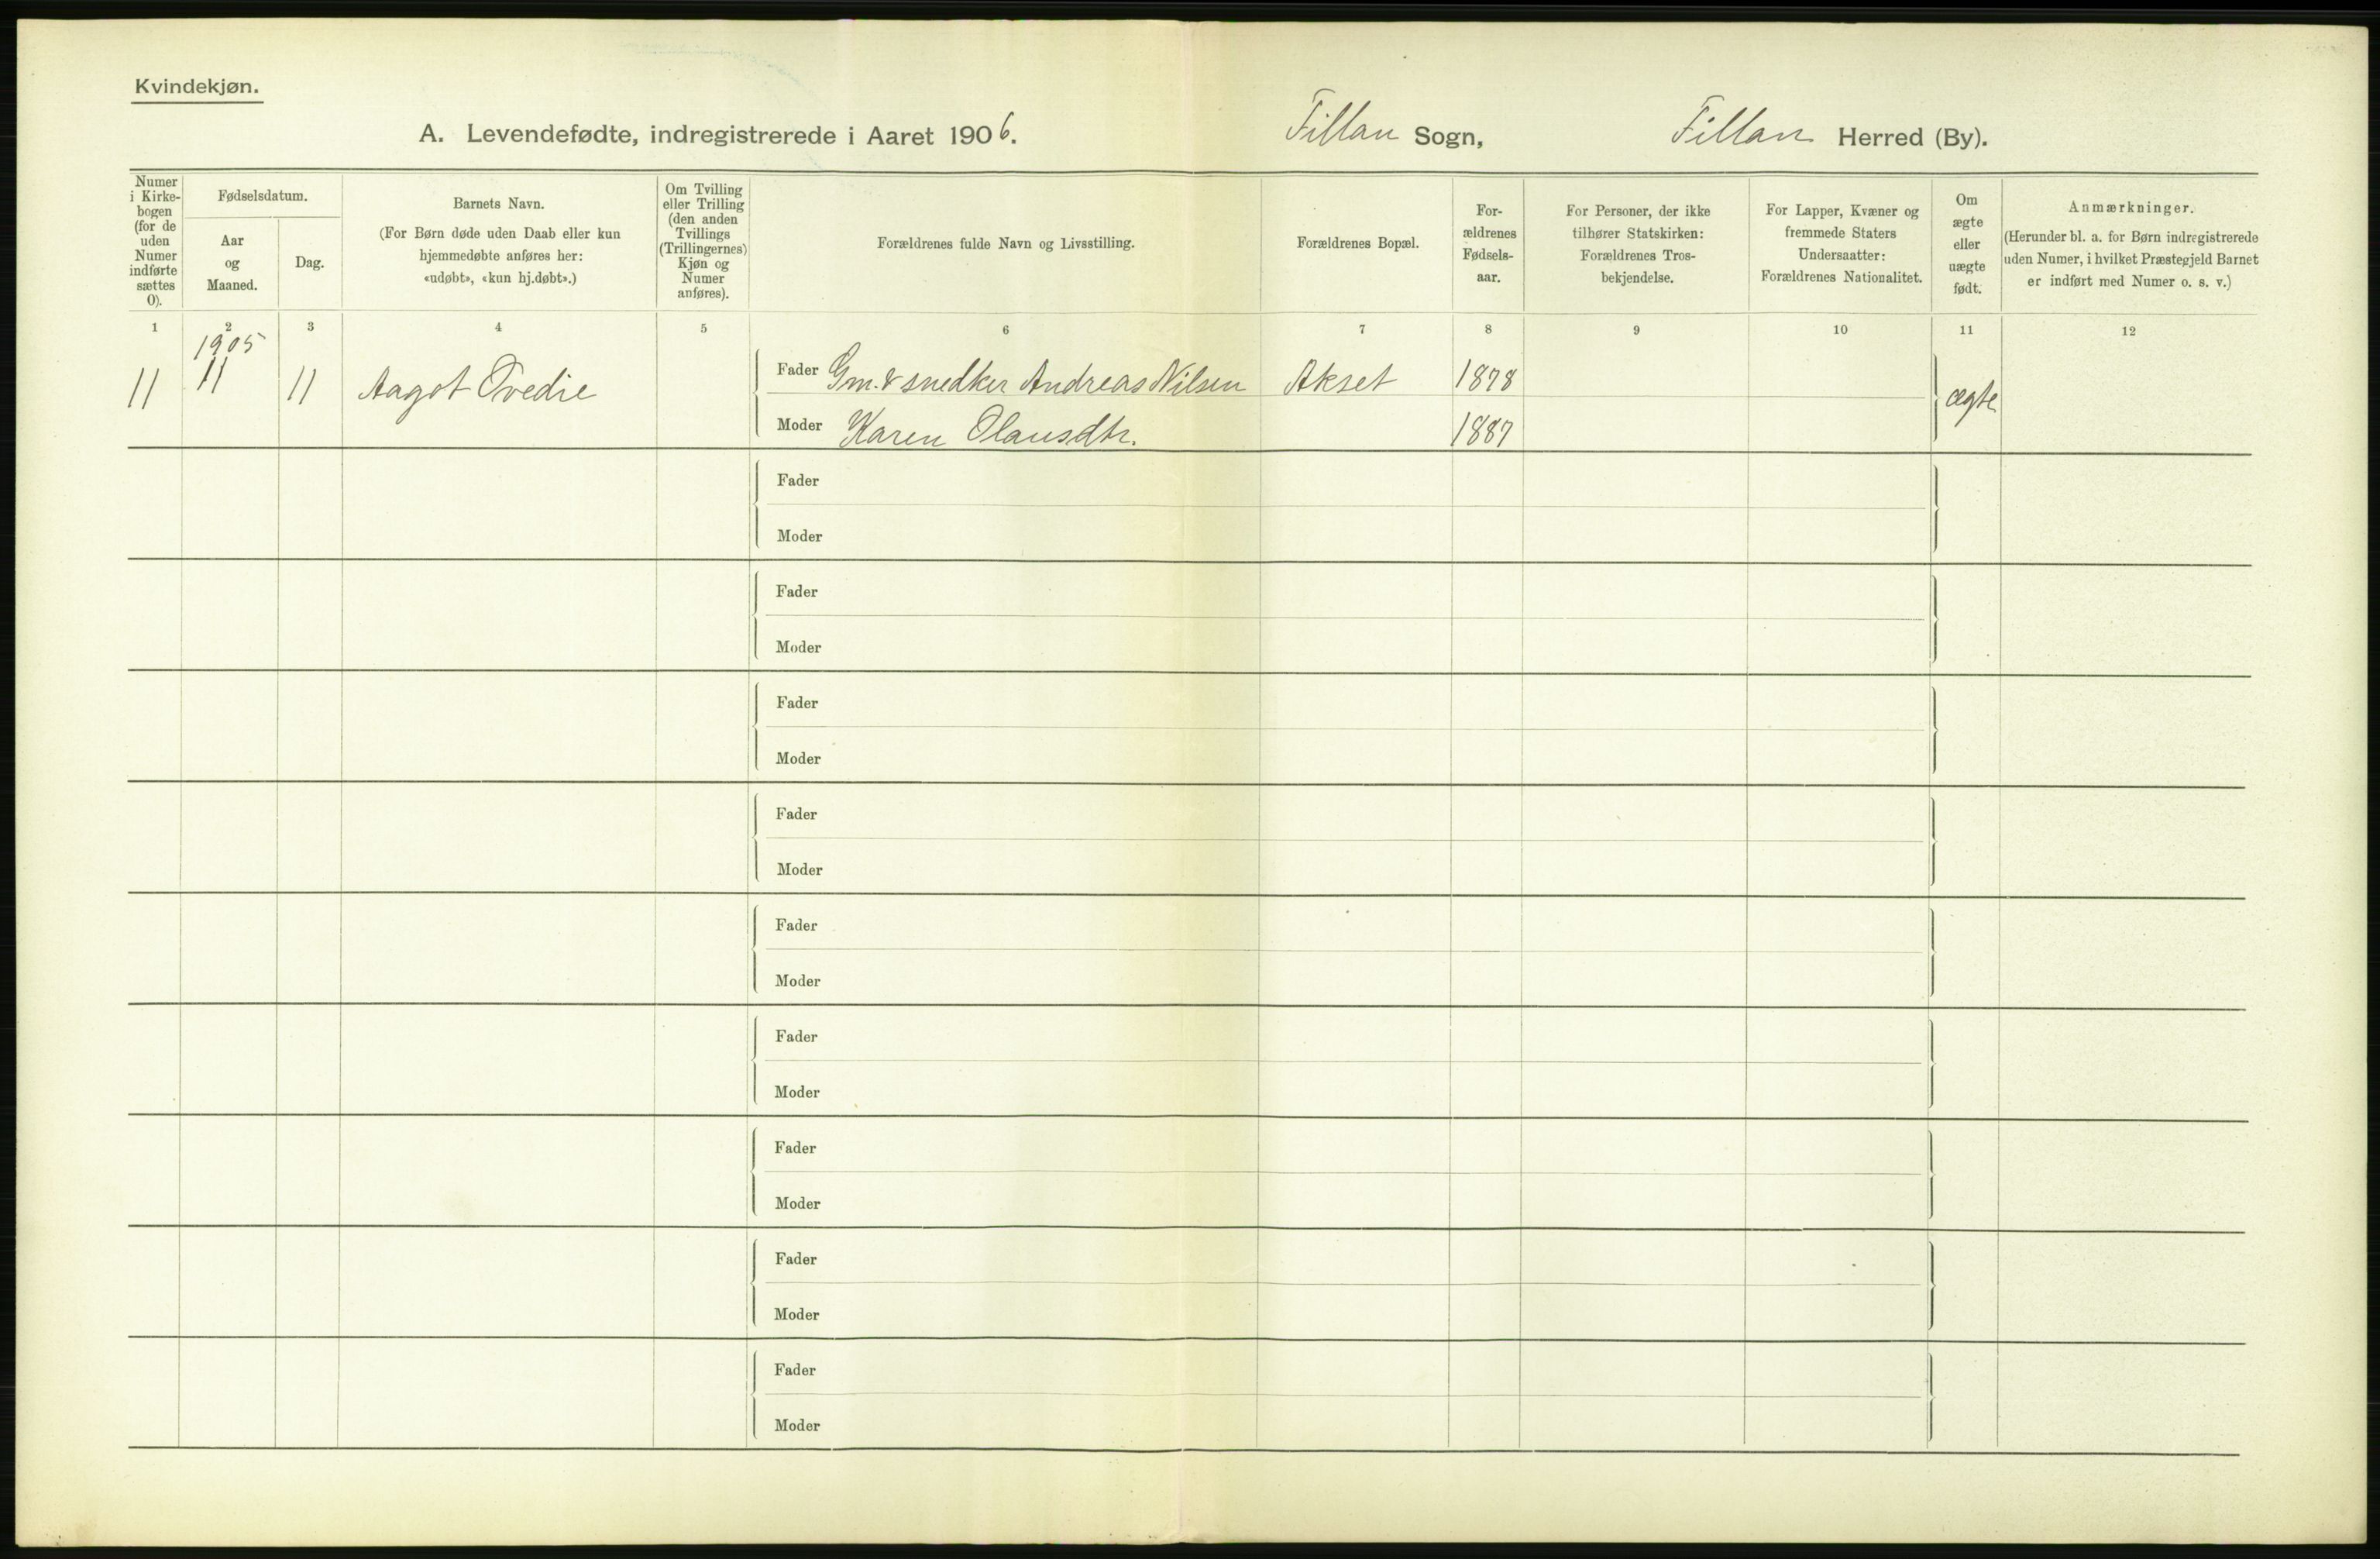 Kvindekjøn.
A. Levendefødte, indregistrerede i Aaret 1906. Fillan Sogn, Fillan Herred (By).
Numer
i Kirke-
bogen
(for de
uden
Numer
indførte
sættes
0).
Fødselsdatum.
Aar
og
Maaned.
Dag.
Barnets Navn.
(For Børn døde uden Daab eller kun
hjemmedøbte anføres her:
«udøbt», «kun hj.døbt».)
Om Tvilling
eller Trilling
(den anden
Tvillings
(Trillingernes)
Kjøn og
Numer
anføres).
Forældrenes fulde Navn og Livsstilling.
Forældrenes Bopæl.
For-
ældrenes
Fødsels-
aar.
For Personer, der ikke
tilhører Statskirken:
Forældrenes Tros-
bekjendelse.
For Lapper, Kvæner og
fremmede Staters
Undersaatter:
Forældrenes Nationalitet.
Om
ægte
eller
uægte
født.
Anmærkninger.
(Herunder bl. a. for Børn indregistrerede
uden Numer, i hvilket Præstegjeld Barnet
er indført med Numer o. s. v.)
1 2 3 4 5 6 7 8 9 10 11 12
1905
11 11 11 Aagot Ovedie Fader Gm. & snedker Andreas Nilsen Akset 1878 ægte
Moder Karen Olausdtr. 1887
Fader
Moder
Fader
Moder
Fader
Moder
Fader
Moder
Fader
Moder
Fader
Moder
Fader
Moder
Fader
Moder
Fader
Moder